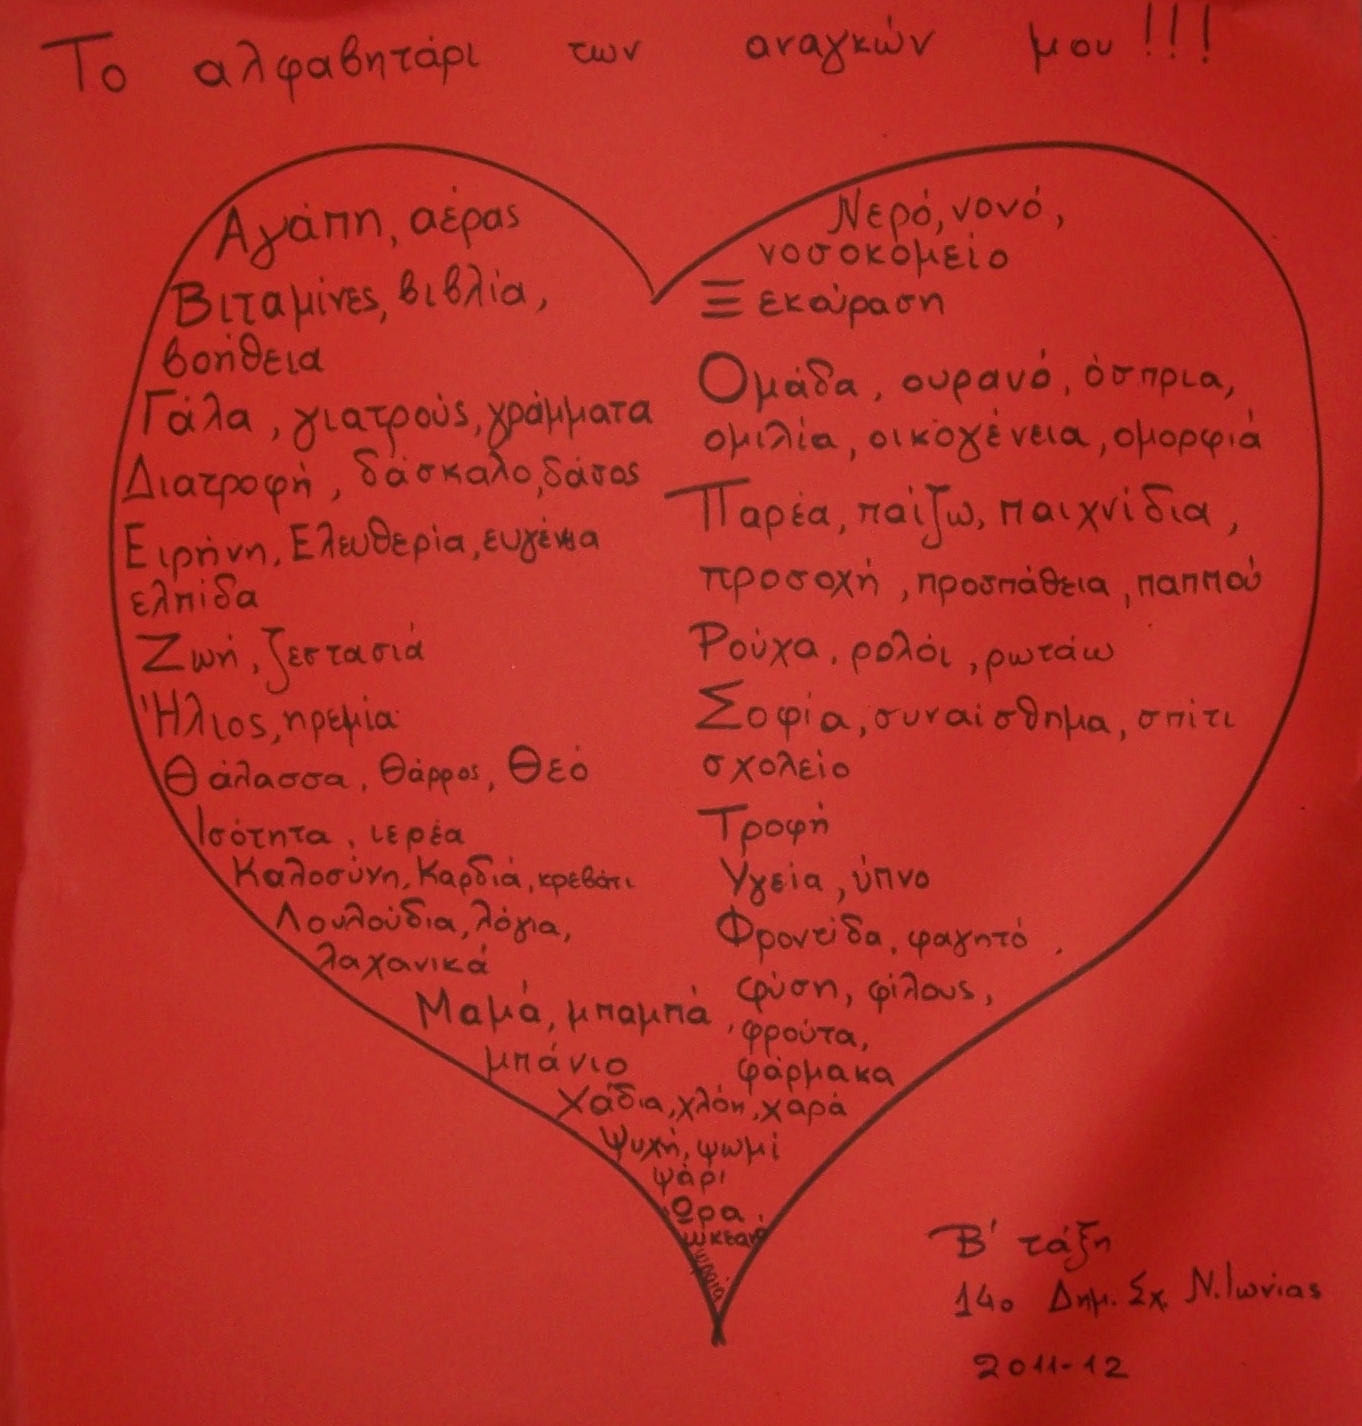 Το αλφαβητάρι των αναγκών μου!!!
Αγάπη, αέρας
Βιταμίνες, βιβλία,
βοήθεια
Γάλα, γιατρούς, γράμματα
Διατροφή, δάσκαλο, δάσος
Ειρήνη, Ελευθερία, ευγένεια
ελπίδα
Ζωή, ζεστασιά
Ήλιος, ηρεμία
Θάλασσα, θάρρος, Θεό
Ισότητα, ιερέα
Καλοσύνη, Καρδιά, κρεβάτι
Λουλούδια, λόγια,
λαχανικά
Μαμά, μπαμπά,
μπάνιο
Νερό, νονό,
νοσοκομείο
Ξεκούραση
Ομάδα, ουρανό, όσπρια,
ομιλία, οικογένεια, ομορφιά
Παρέα, παίζω, παιχνίδια,
προσοχή, προσπάθεια, παππού
Ρούχα, ρολόι, ρωτάω
Σοφία, συναίσθημα, σπίτι
σχολείο
Τροφή
Υγεία, ύπνο
Φροντίδα, φαγητό,
φύση, φίλους,
φρούτα,
φάρμακα
Χάδια, χλόη, χαρά
Ψυχή, ψωμί
ψάρι
Ώρα,
ωκεανό
Β' τάξη
14ο Δημ. Σχ. Ν. Ιωνίας
2011-12